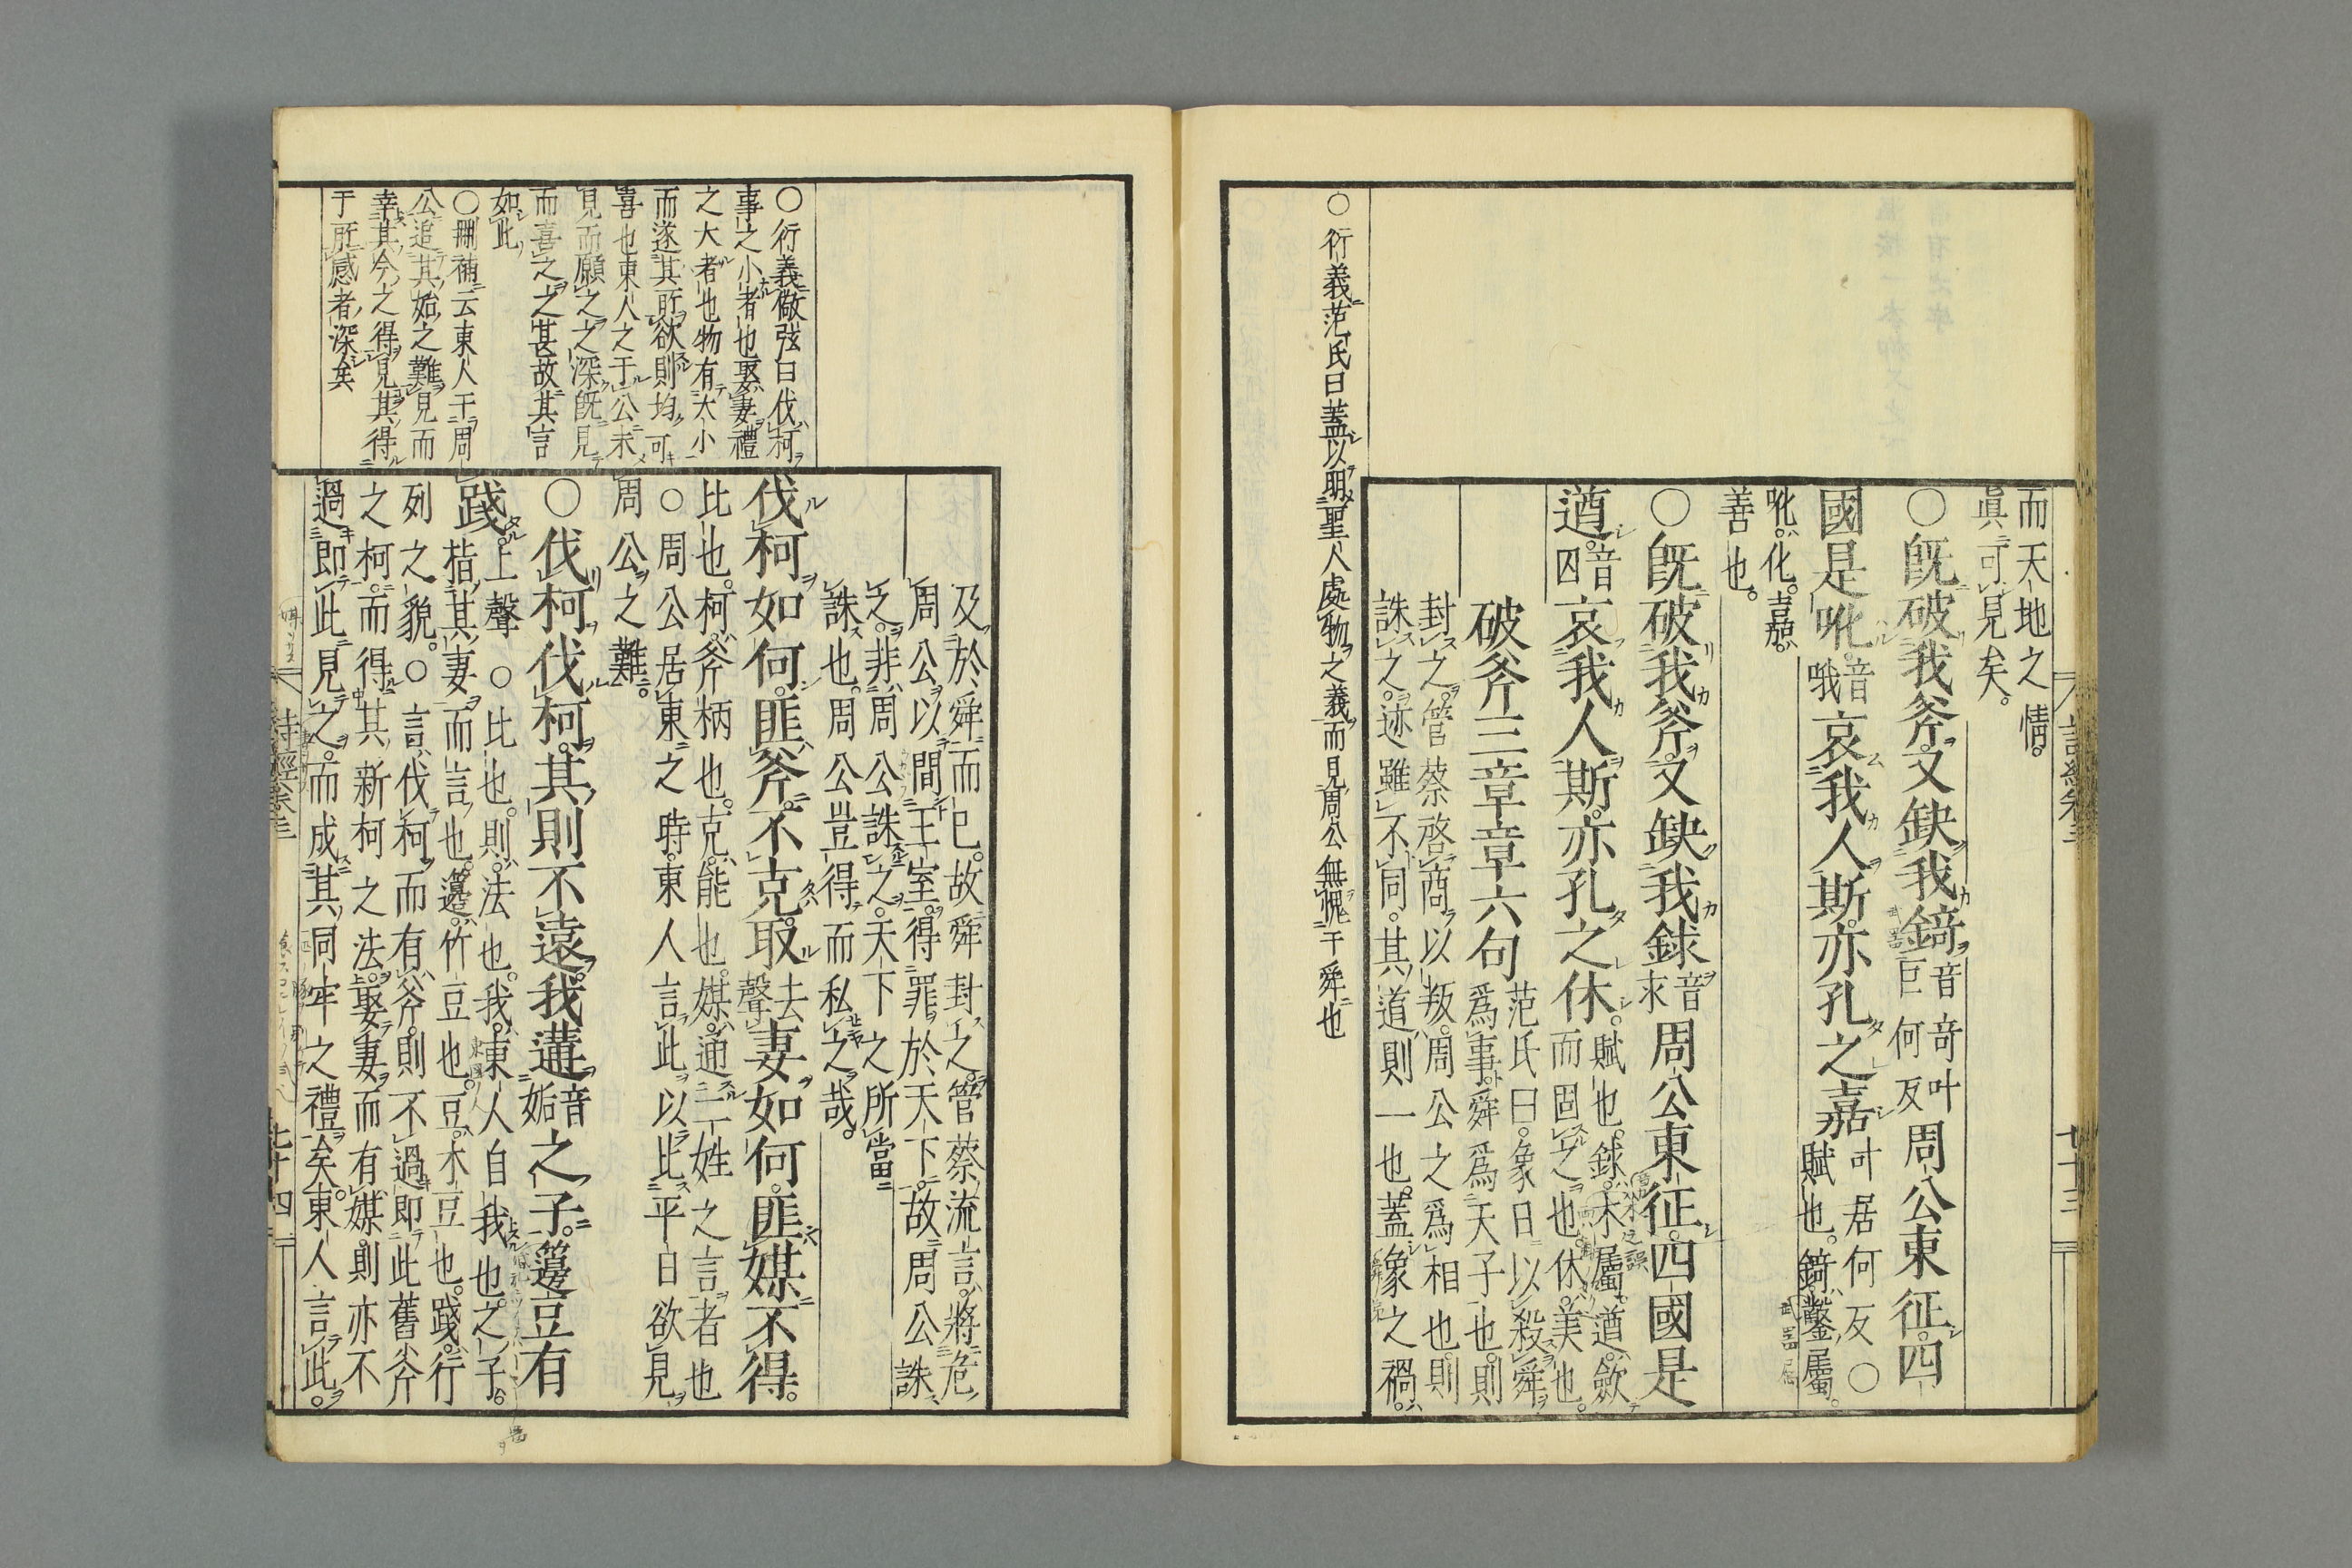 而天地之情
眞可見矣。
○旣破我斧。又缺我錡。音奇叶巨何反周公東征。四
國是吪。音哦哀我人斯。亦孔之嘉叶居何反○賦也。錡。鑿屬。
吪。化。嘉。
善也。
○旣破我斧。又缺我銶音求周公東征。四國是
遒。音囚哀我人斯。亦孔之休。賦也。銶。木屬。遒。歛而固之也。休。美也。
破斧三章章六句范氏曰。象日以殺舜爲事。舜爲天子也。則
封之。管蔡啓商以叛。周公之爲相也。則
誅之。迹雖不同。其道則一也。蓋象之禍。
○衍義范氏曰蓋以明聖人處物之義而見周公無愧于舜也
詩經卷三
七十三
及於舜而已。故舜封之。管蔡流言。將危
周公以間王室。得罪於天下。故周公誅
之。非周公誅之。天下之所當
誅也。周公豈得而私之哉。
伐柯如何。匪斧不克。取去聲妻如何。匪媒不得。
比也。柯。斧柄也。克。能也。媒。通二姓之言者也
○周公居東之時。東人言此。以比平日欲見
周公之難。
○伐柯伐柯。其則不遠。我遘音姤之子。籩豆有
踐。上聲○比也。則。法也。我。東人自我也。之子。
指其妻而言也。籩。竹豆也。豆。木豆也。踐。行
列之貌。○言伐柯而有斧。則不過即此舊斧
之柯。而得其新柯之法。娶妻而有媒。則亦不
過即此見之。而成其同牢之禮矣。東人言此。
○衍義徹弦曰伐柯
事之小者也娶妻禮
之大者也物有大小
而遂其所欲則均可
喜也東人之于公未
見而願之之深旣見
而喜之之甚故其言
如此
○刪補云東人于周
公追其始之難見而
幸其今之得見其得
于所感者深矣
詩經卷三
七十四